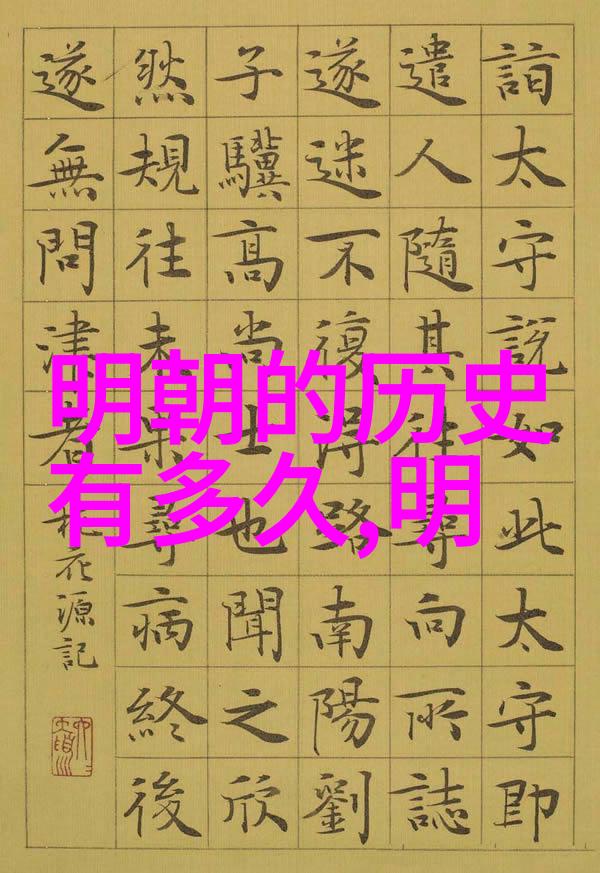 詣太守說如此太守即
遣人隨其往尋向所誌
遂迷不復得路南陽劉
子驥高尚士也聞之欣
然規往未果尋病終後
遂無問津者
桃花源記
明朝的历史
有多久,明